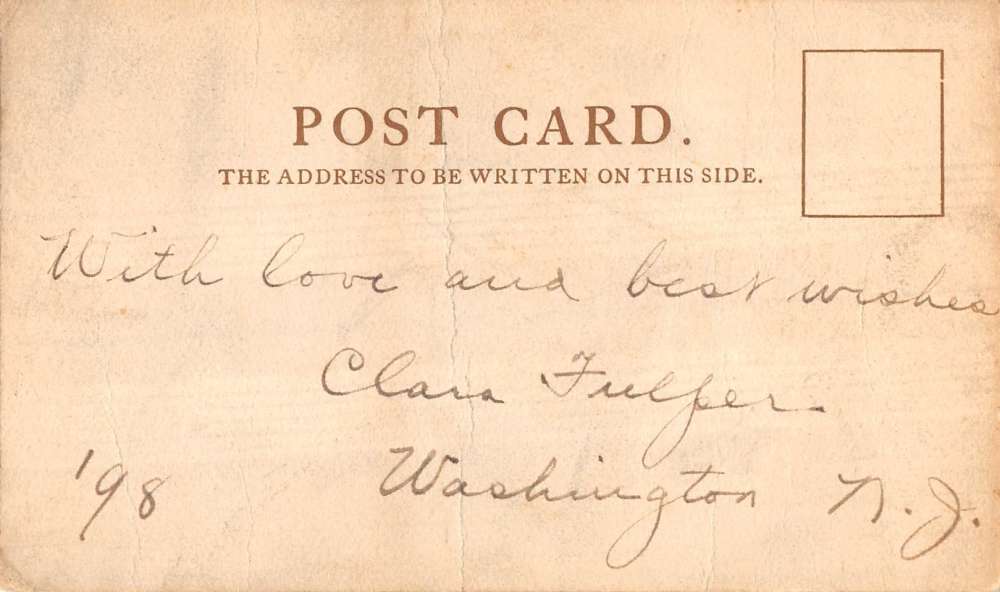 POST CARD.
THE ADDRESS TO BE WRITTEN ON THIS SIDE.
With love and best wishes
Clara Fulper.
'98 Washington N.J.